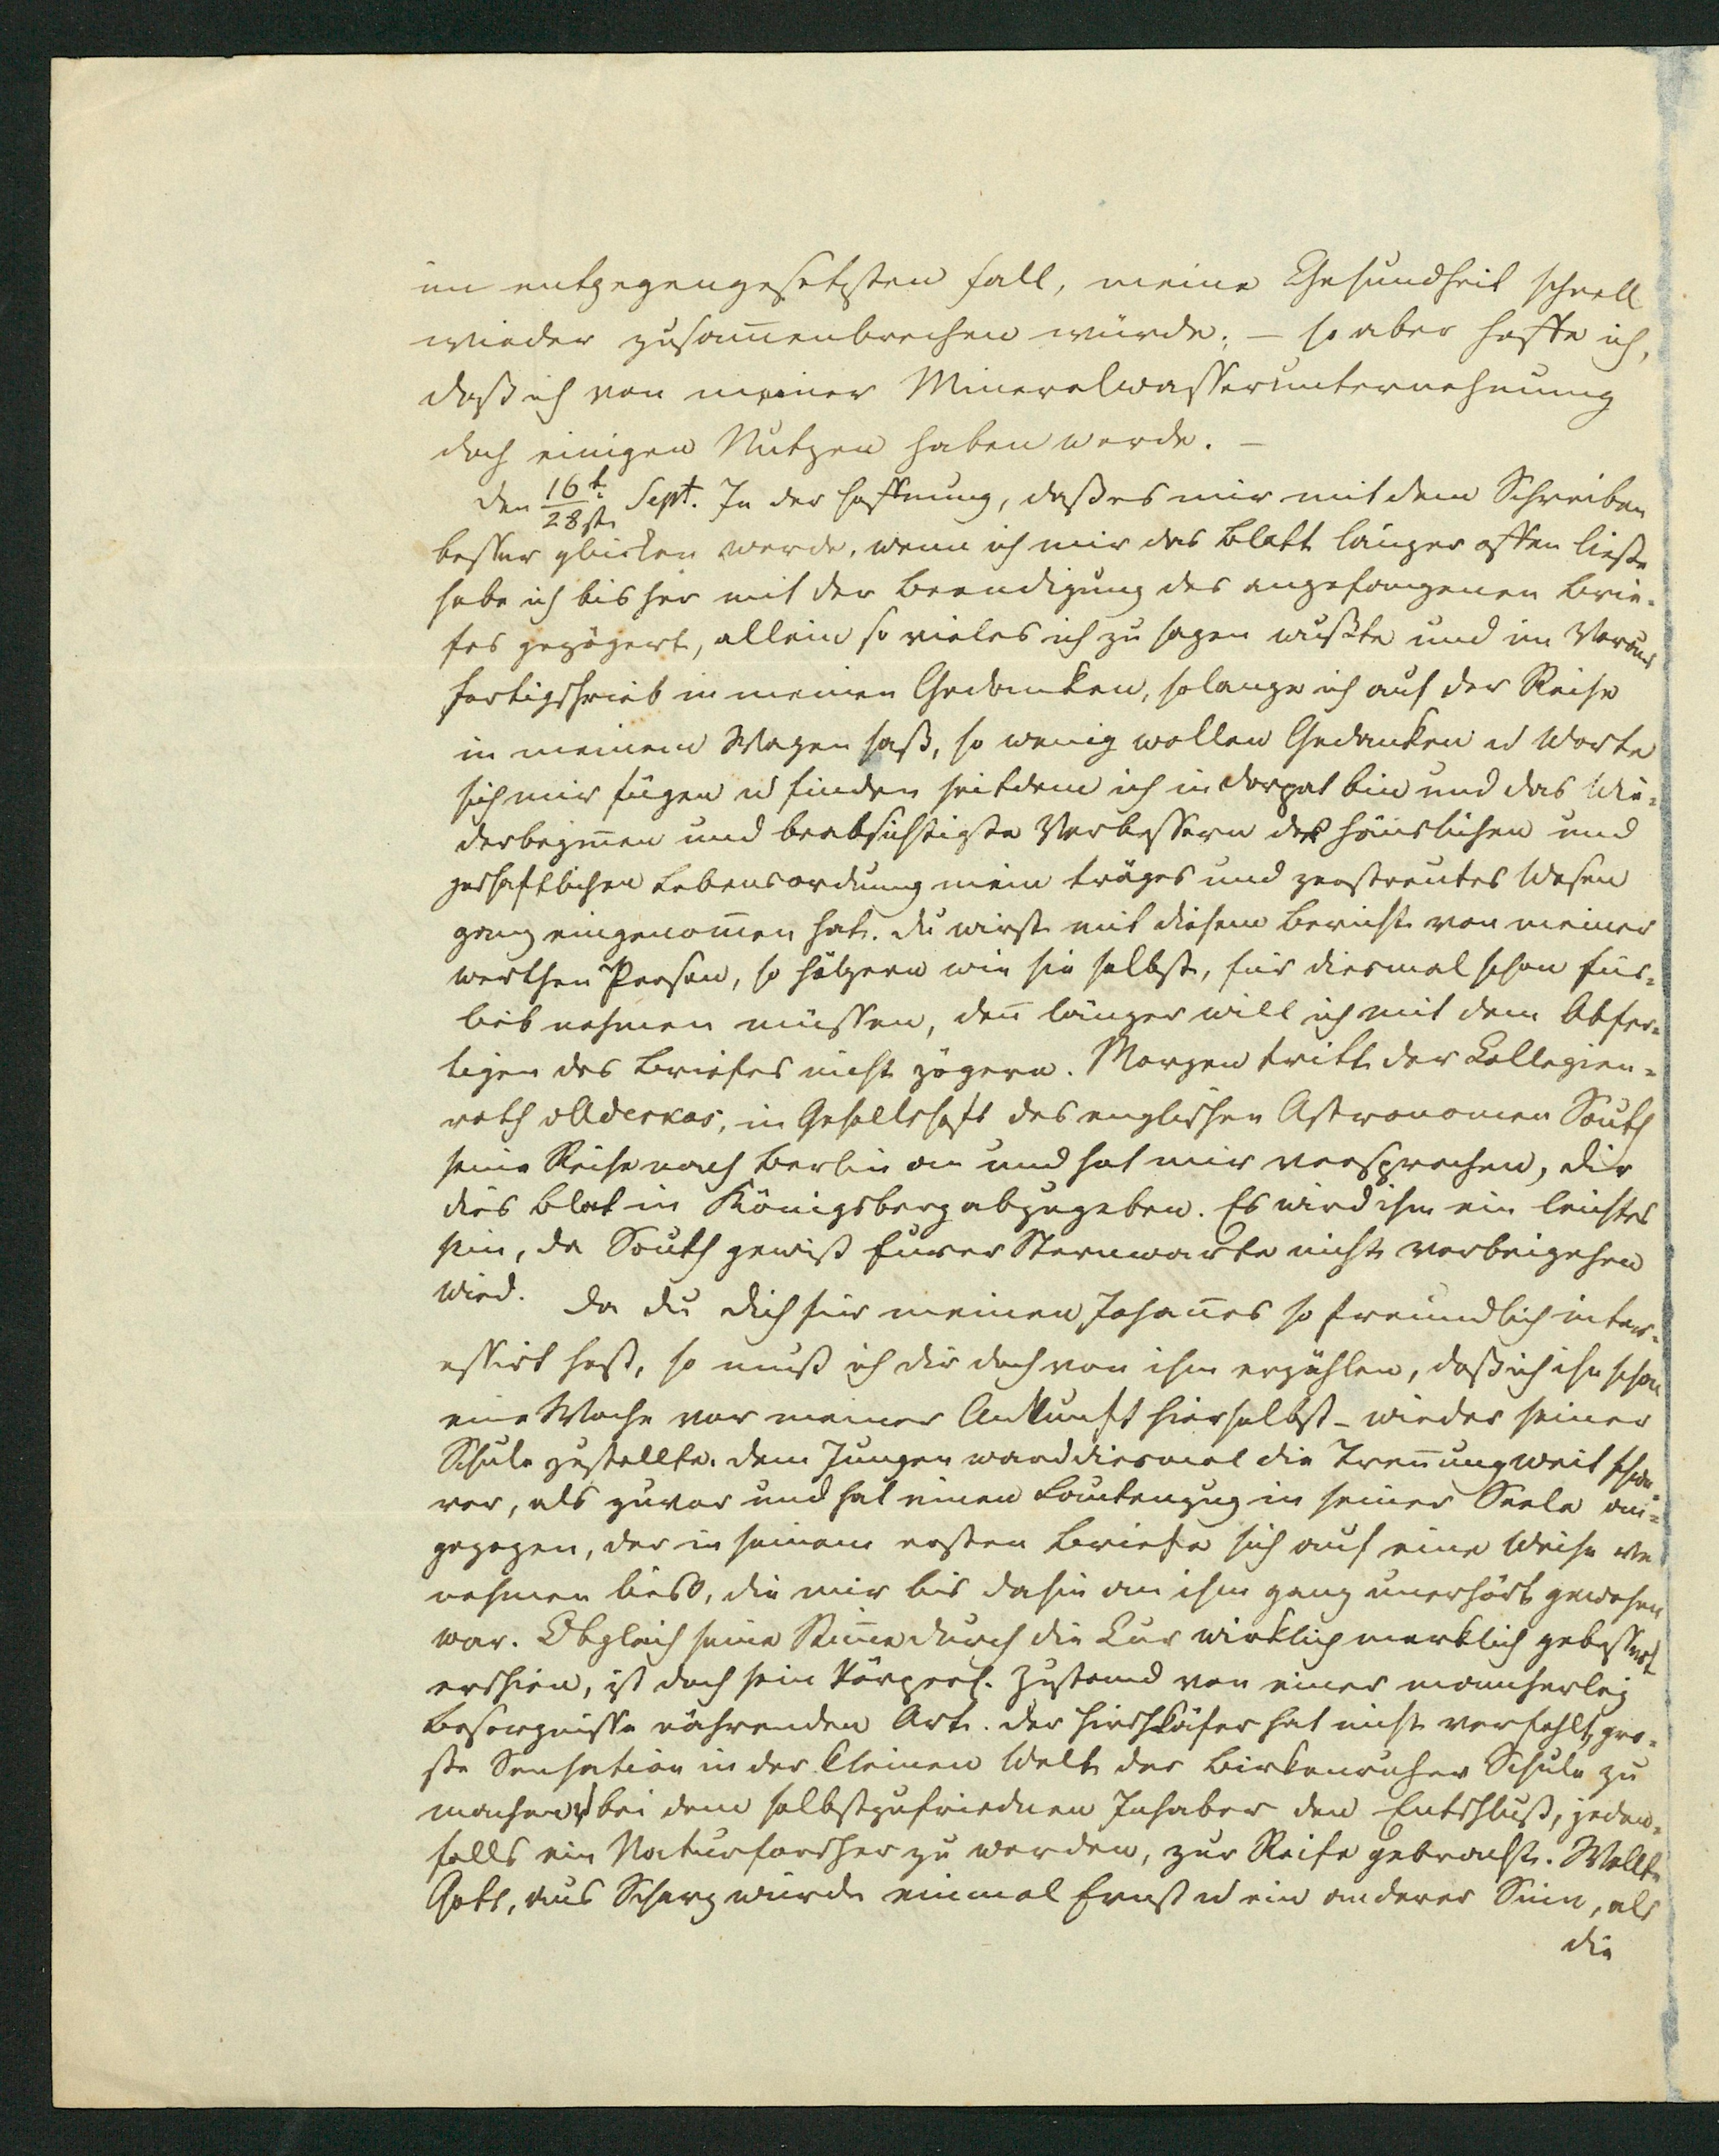 im entgegengesetzten Fall, meine Gesundheit schnell
wieder zusam̅enbrechen würde; – so aber hoffe ich,
daß ich von meiner Mineralwasserunternehmung
doch einigen Nutzen haben werde. –
Den 16t/28st Sept. In der Hoffnung, daß es mir mit dem Schreiben
besser glücken werde, wenn ich mir das Blatt länger offen ließe
habe ich bisher mit der Beendigung des angefangenen Brie-
fes gezögert, allein so vieles ich zu sagen wußte und im Voraus
fertigschrieb in meinen Gedanken, solange ich auf der Reise
in meinem Wagen saß, so wenig wollen Gedanken u Worte
sich mir fügen u finden seitdem ich in Dorpat bin und das Wie-
derbegin̅en und beabsichtigte Verbessern der häuslichen und
geschäftlichen Lebensordnung mein träges und zerstreutes Wesen
ganz eingenom̅en hat. Du wirst mit diesem Bericht von meiner
werthen Person, so hölzern wie sie selbst, für diesmal schon für-
lieb nehmen müssen, den̅ länger will ich mit dem Abfer-
tigen des Briefes nicht zögern. Morgen tritt der Collegien-
rath Aderkas, in Gesellschaft des englischen Astronomen South
seine Reise nach Berlin an und hat mir versprochen, Dir
dies Blat in Königsberg abzugeben. Es wird ihm ein leichtes
sein, da South gewiß Eurer Sternwarte nicht vorbeigehen
wird. Da Du Dich für meinen Johan̅es so freundlich inter-
essirt hast, so muß ich Dir doch von ihm erzählen, daß ich ihn schon
eine Woche vor meiner Ankunft hierselbst – wieder seiner
Schule zustellte. Dem Jungen ward diesmal die Tren̅ung weit schwe-
rer, als zuvor und hat einen Lautenzug in seiner Seele an-
gezogen, der in seinem ersten Briefe sich auf eine Weise ver
nehmen ließ, die mir bis dahin an ihm ganz unerhört gewesen
war. Obgleich seine Stim̅e durch die Cur wirklich merklich gebessert
erschien, ist doch sein körperl. Zustand von einer mancherlei
Besorgnisse nährenden Art. Der Hirschkäfer hat nicht verfehlt, gro-
ße Sensation in der kleinen Welt der Birkenruher Schule zu
machen u bei dem selbstzufriednen Inhaber den Entschluß, jeden-
falls ein Naturforscher zu werden, zur Reife gebracht. Wollte
Gott, aus Scherz würde einmal Ernst u ein anderer Sinn, als
die